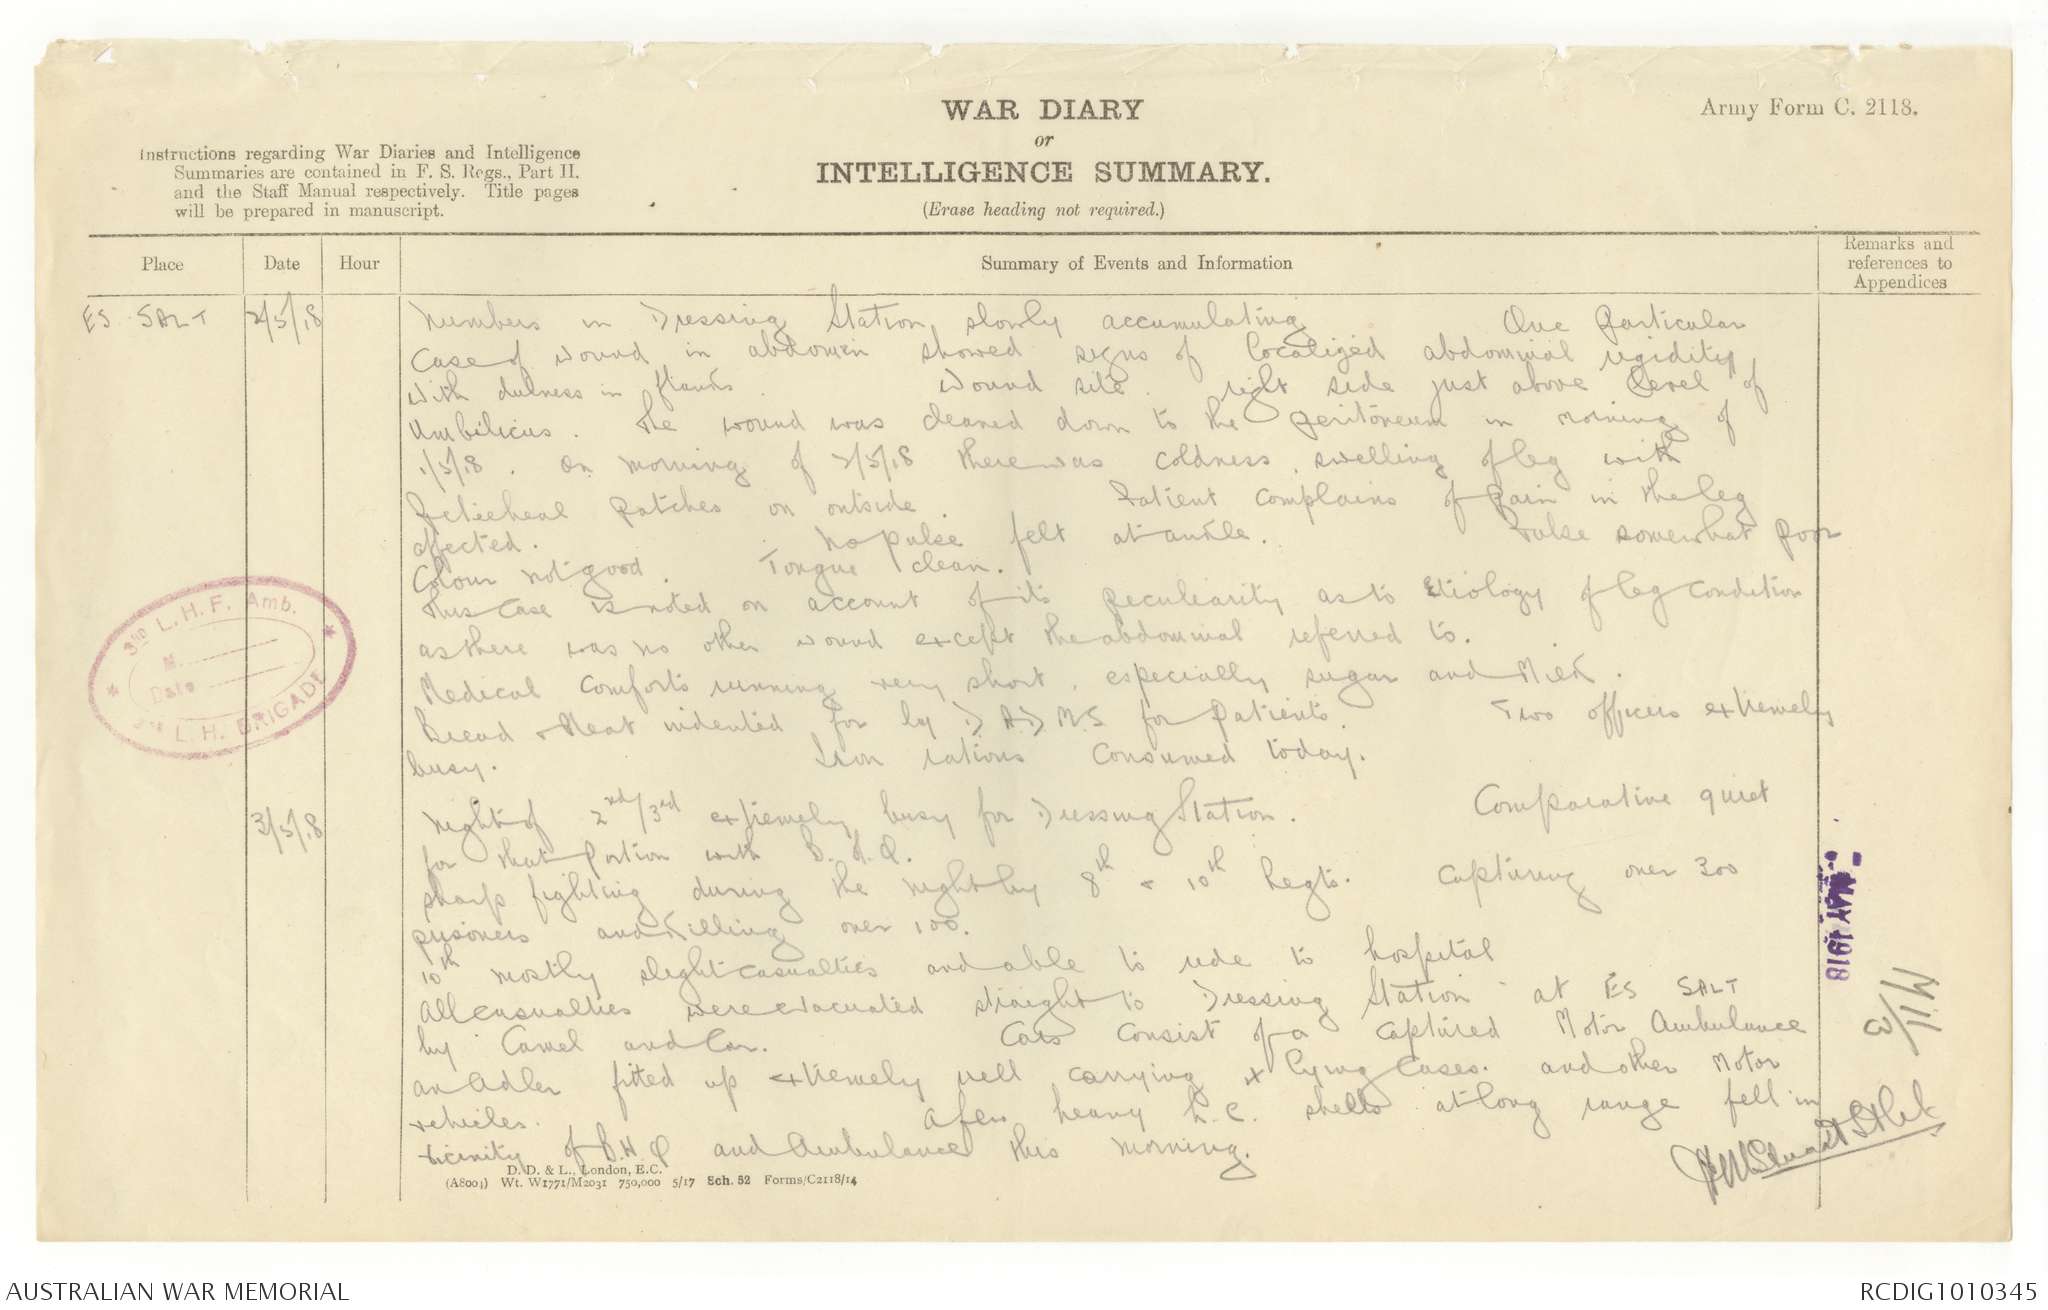 WAR DIARY
or
INTELLIGENCE SUMMARY.
(Erase heading not required.)
Army Form C. 2118.
Instructions regarding War Diaries and Intelligence
Summaries are contained in F. S. Regs., Part II.
and the Staff Manual respectively. Title pages
will be prepared in manuscript.
Place
Date
Hour
Summary of Events and Information
Remarks and
references to
Appendices
ES SALT 2/5/18 Numbers in Dressing Station slowly accumulating One particular
case of wound in abdomen showed signs of localized abdominal rigidity
with dulness in flanks. Wound site right side just above level of
Umbilicus. The wound was cleaned down to the peritoneum in morning of
1/5/18. On morning of 2/5/18 there was coldness, swelling of leg with
Petecheal patches on outside. Patient complains of pain in the leg
affected. No pulse felt at ankle. Pulse somewhat poor
Colour not good. Tongue clean.
This case is noted on account of its peculiarity as to Etiology of leg condition
as there was no other wound except the abdominal referred to.
Medical comforts running very short, especially sugar and Milk.
Bread & Meat indented for by D A D M S for patients. Two officers extremely
busy. Iron rations consumed today.
3/5/18 Night of 2nd/3rd extremely busy for Dressing Station. Comparative quiet
for that portion with B.H.Q.
sharp fighting during the night by 8th & 10th Regts. Capturing over 300
prisoners and killing over 100.
10th mostly slight casualties and able to ride to hospital
All casualties were evacuated straight to Dressing Station at ES SALT
by Camel and Car. Cars consist of a captured Motor Ambulance
an Adler fitted up extremely well carrying 4 lying cases. and other Motor
vehicles. A few heavy H.E. shells at long range fell in
vicinity of B.H.Q and Ambulance this morning.
3RD L. H. F. Amb.
M.
Date
3RD L. H. BRIGADE
MAY 1918
D. D. & L., London, E.C.
(A8004) Wt. W1771/M2031 750,000 5/17 Sch. 52 Forms/C2118/14
AUSTRALIAN WAR MEMORIAL
RCDIG1010345